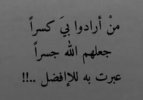 منْ أرادوا بيَ كسراً
جعلهم الله جسراً
عبرت به للإفضل ..!!